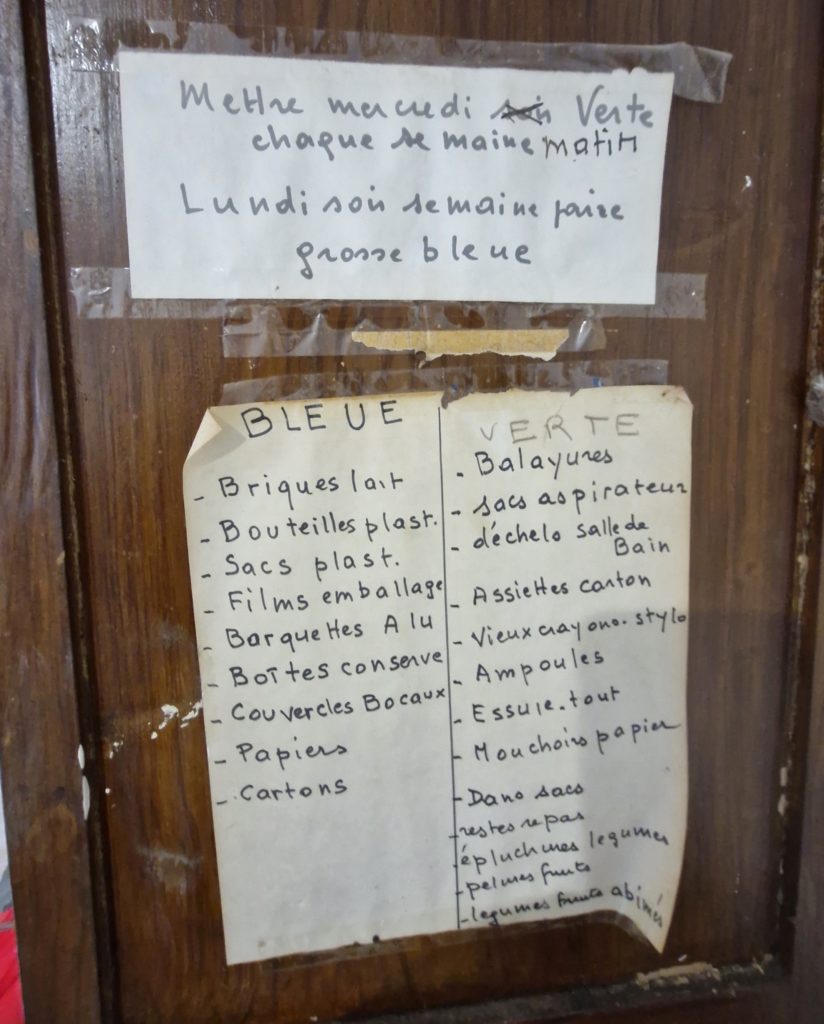 Mettre mercredi soir Verte
chaque semaine matin
Lundi soir semaine paire
grosse bleue
BLEUE
- Briques lait
- Bouteilles plast.
- Sacs plast.
- Films emballage
- Barquettes Alu
- Boîtes conserve
- Couvercles Bocaux
- Papiers
- Cartons
VERTE
- Balayures
- sacs aspirateur
- déchets salle de
Bain
- Assiettes carton
- Vieux crayons. stylo
- Ampoules
- Essuie.tout
- Mouchoirs papier
- Dans sacs
- restes repas
- épluchures legumes
- pelures fruits
- legumes fruits abimés